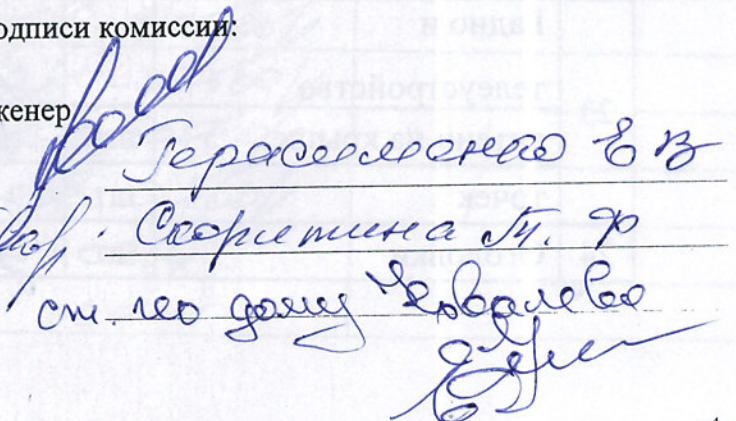 одписи комиссии:
женер
Герасименко Е В
Скорятина Т. Ф
ст. по дому Ковалева